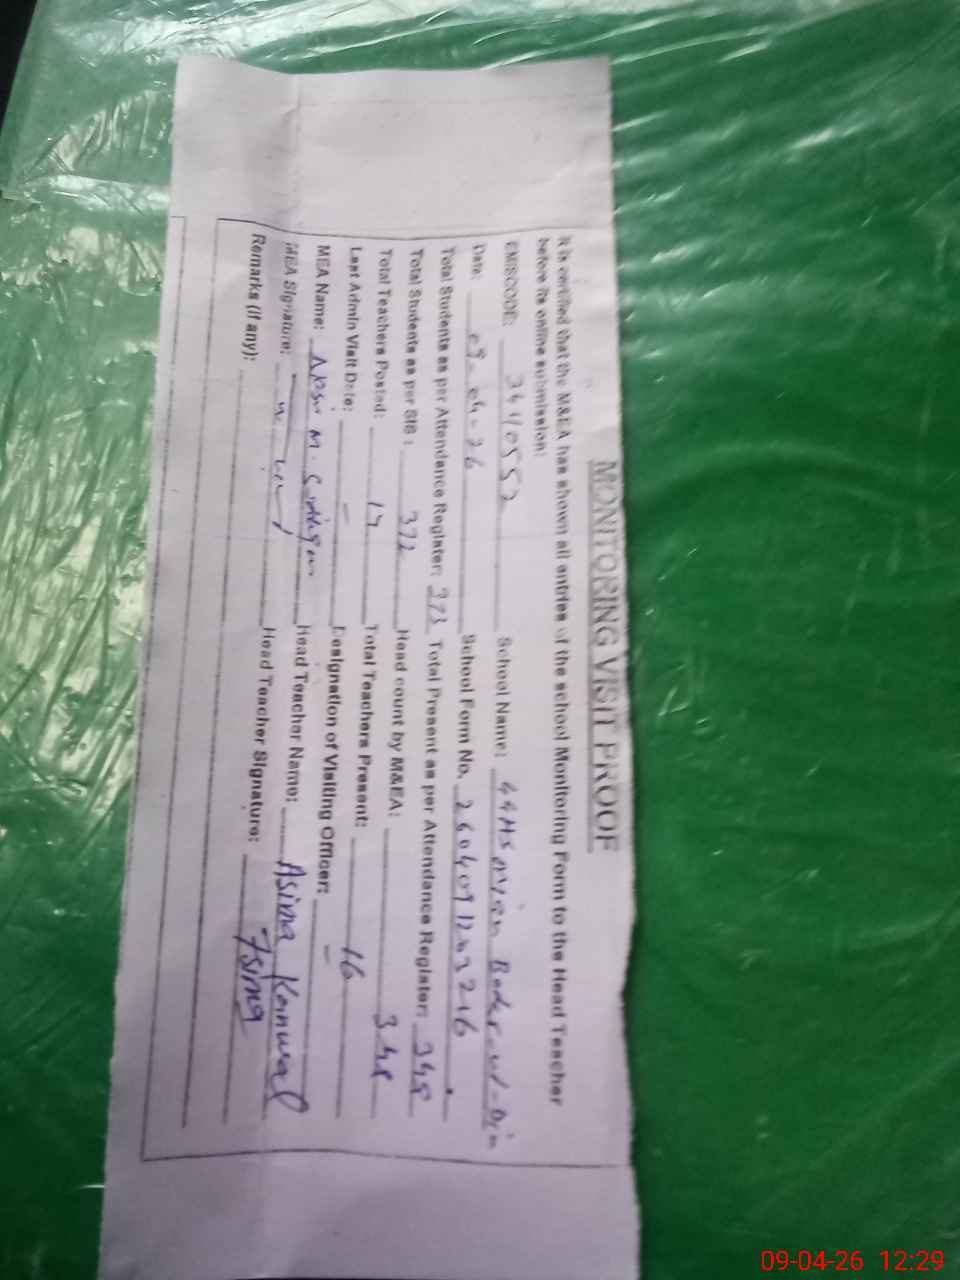 MONITORING VISIT PROOF
It is certified that the M&EA has shown all entries of the school Monitoring Form to the Head Teacher
before its online submission:
EMISCODE: 34110552 School Name: GGHS Mian Badar-ud-Din
Date: 09-04-26 School Form No. 2604091203216
Total Students as per Attendance Register: 373 Total Present as per Attendance Register: 348
Total Students as per SIS: 372 Head count by M&EA: 348
Total Teachers Posted: 17 Total Teachers Present: 16
Last Admin Visit Date: – Designation of Visiting Officer: –
MEA Name: M. Head Teacher Name: Asima Kanwal
MEA Signature: Head Teacher Signature: Asima
Remarks (if any):
09-04-26 12:29